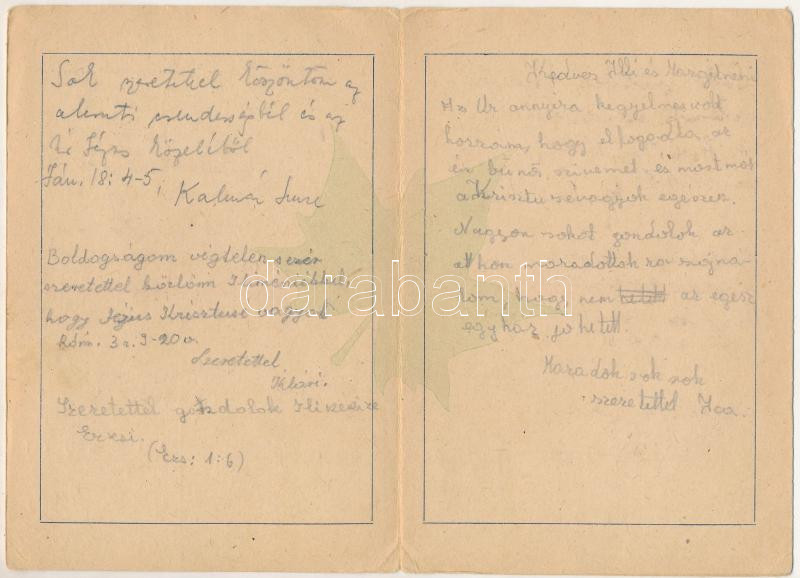 Sok szeretettel köszönteni az
almuti csendességből és az
Úr Jézus közeléből
Ján. 18: 4-5;
Kalmár Imre
Boldogságom végtelen
szeretettel közlöm
hogy Jézus Krisztusé vagyok
Róm. 3 r. 9-20 v.
Szeretettel
Klári.
Szeretettel gondolok
Erzsi.
(Ezs: 1:6)
Kedves Illi és Margitnéni
Az Úr annyira kegyelmes volt
hozzám, hogy elfogadta az
én bűnös szivemet, és most már
a Krisztusé vagyok egészen.
Nagyon sokat gondolok az
otthon maradottokra sajná-
lom, hogy nem az egész
egyház jöhetett.
Maradok sok sok
szeretettel Ica.
darabanth